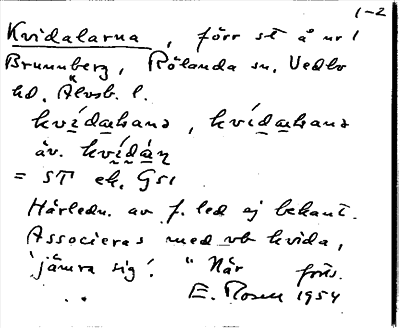 1-2
Kvidalarna, förr st å nr 1
Brunnberg, Rölanda sn, Vedbo
hd, Älvsb. l.
kvídaŀana, kvídaŀana
äv. kvídáŋ
= ST ek. GS1
Härledn. av f. led ej bekant.
Associeras med vb kvida,
'jämra sig'. "När förs.
E. Rosen 1954